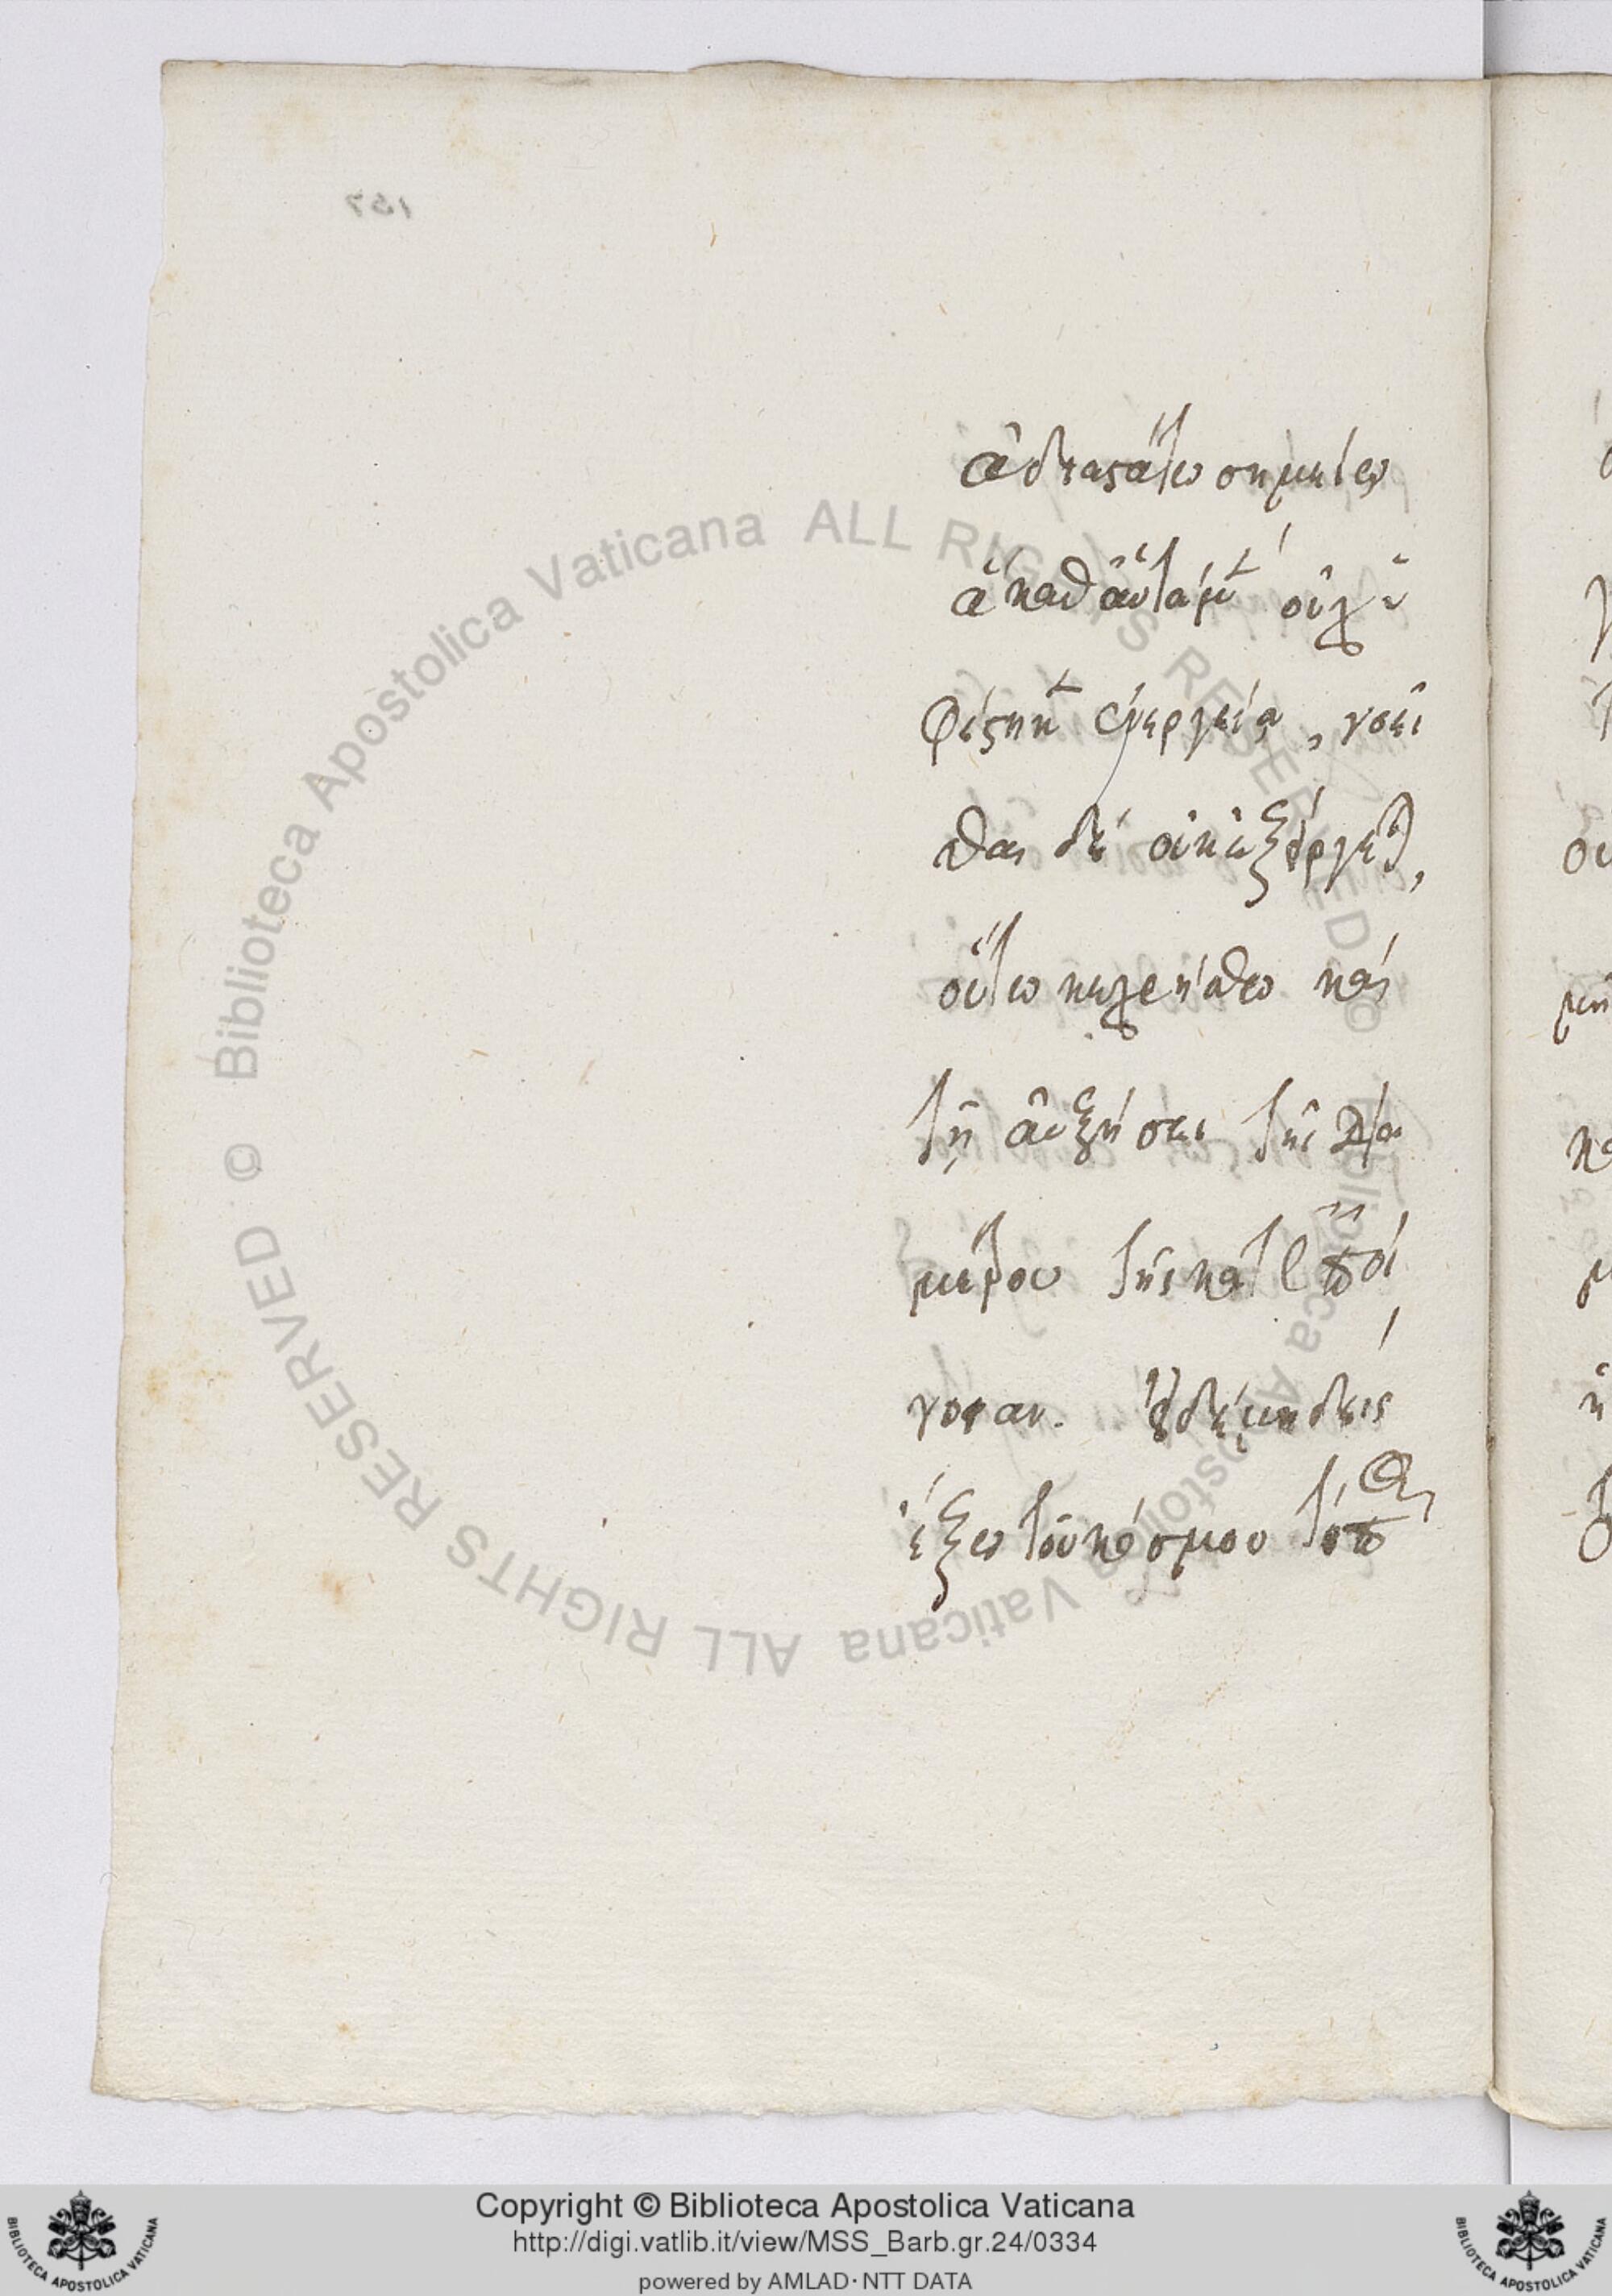 ἀδιαστάτω σημείω
ἃ καθ' αὑτὰ μὲν οὐχ ὑ
φέστηκεν ἐνεργεία, νοεῖ
σθαι δὲ οὐκ
οὕτω κεχρήσθω καὶ
τῇ αὐξήσει τῆς δια
μέτρου τῆς κατ' ἐπί
νοιαν. εἰ δὲ μηδείς
ἔξω τοῦ κόσμου τόπος
Biblioteca Apostolica Vaticana ALL RIGHTS RESERVED ©
Biblioteca Apostolica Vaticana ALL RIGHTS RESERVED ©
Copyright © Biblioteca Apostolica Vaticana
http://digi.vatlib.it/view/MSS_Barb.gr.24/0334
powered by AMLAD·NTT DATA
BIBLIOTECA APOSTOLICA VATICANA
BIBLIOTECA APOSTOLICA VATICANA